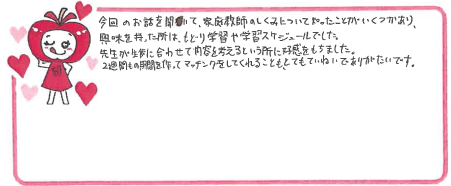 今回のお話を聞いて、家庭教師のしくみについて知ったことがいくつかあり、
興味を持った所は、もどり学習や学習スケジュールでした。
先生が生徒に合わせて内容を考えるという所に好感をもちました。
2週間もの期間を作ってマッチングをしてくれることも、とてもていねいでありがたいです。